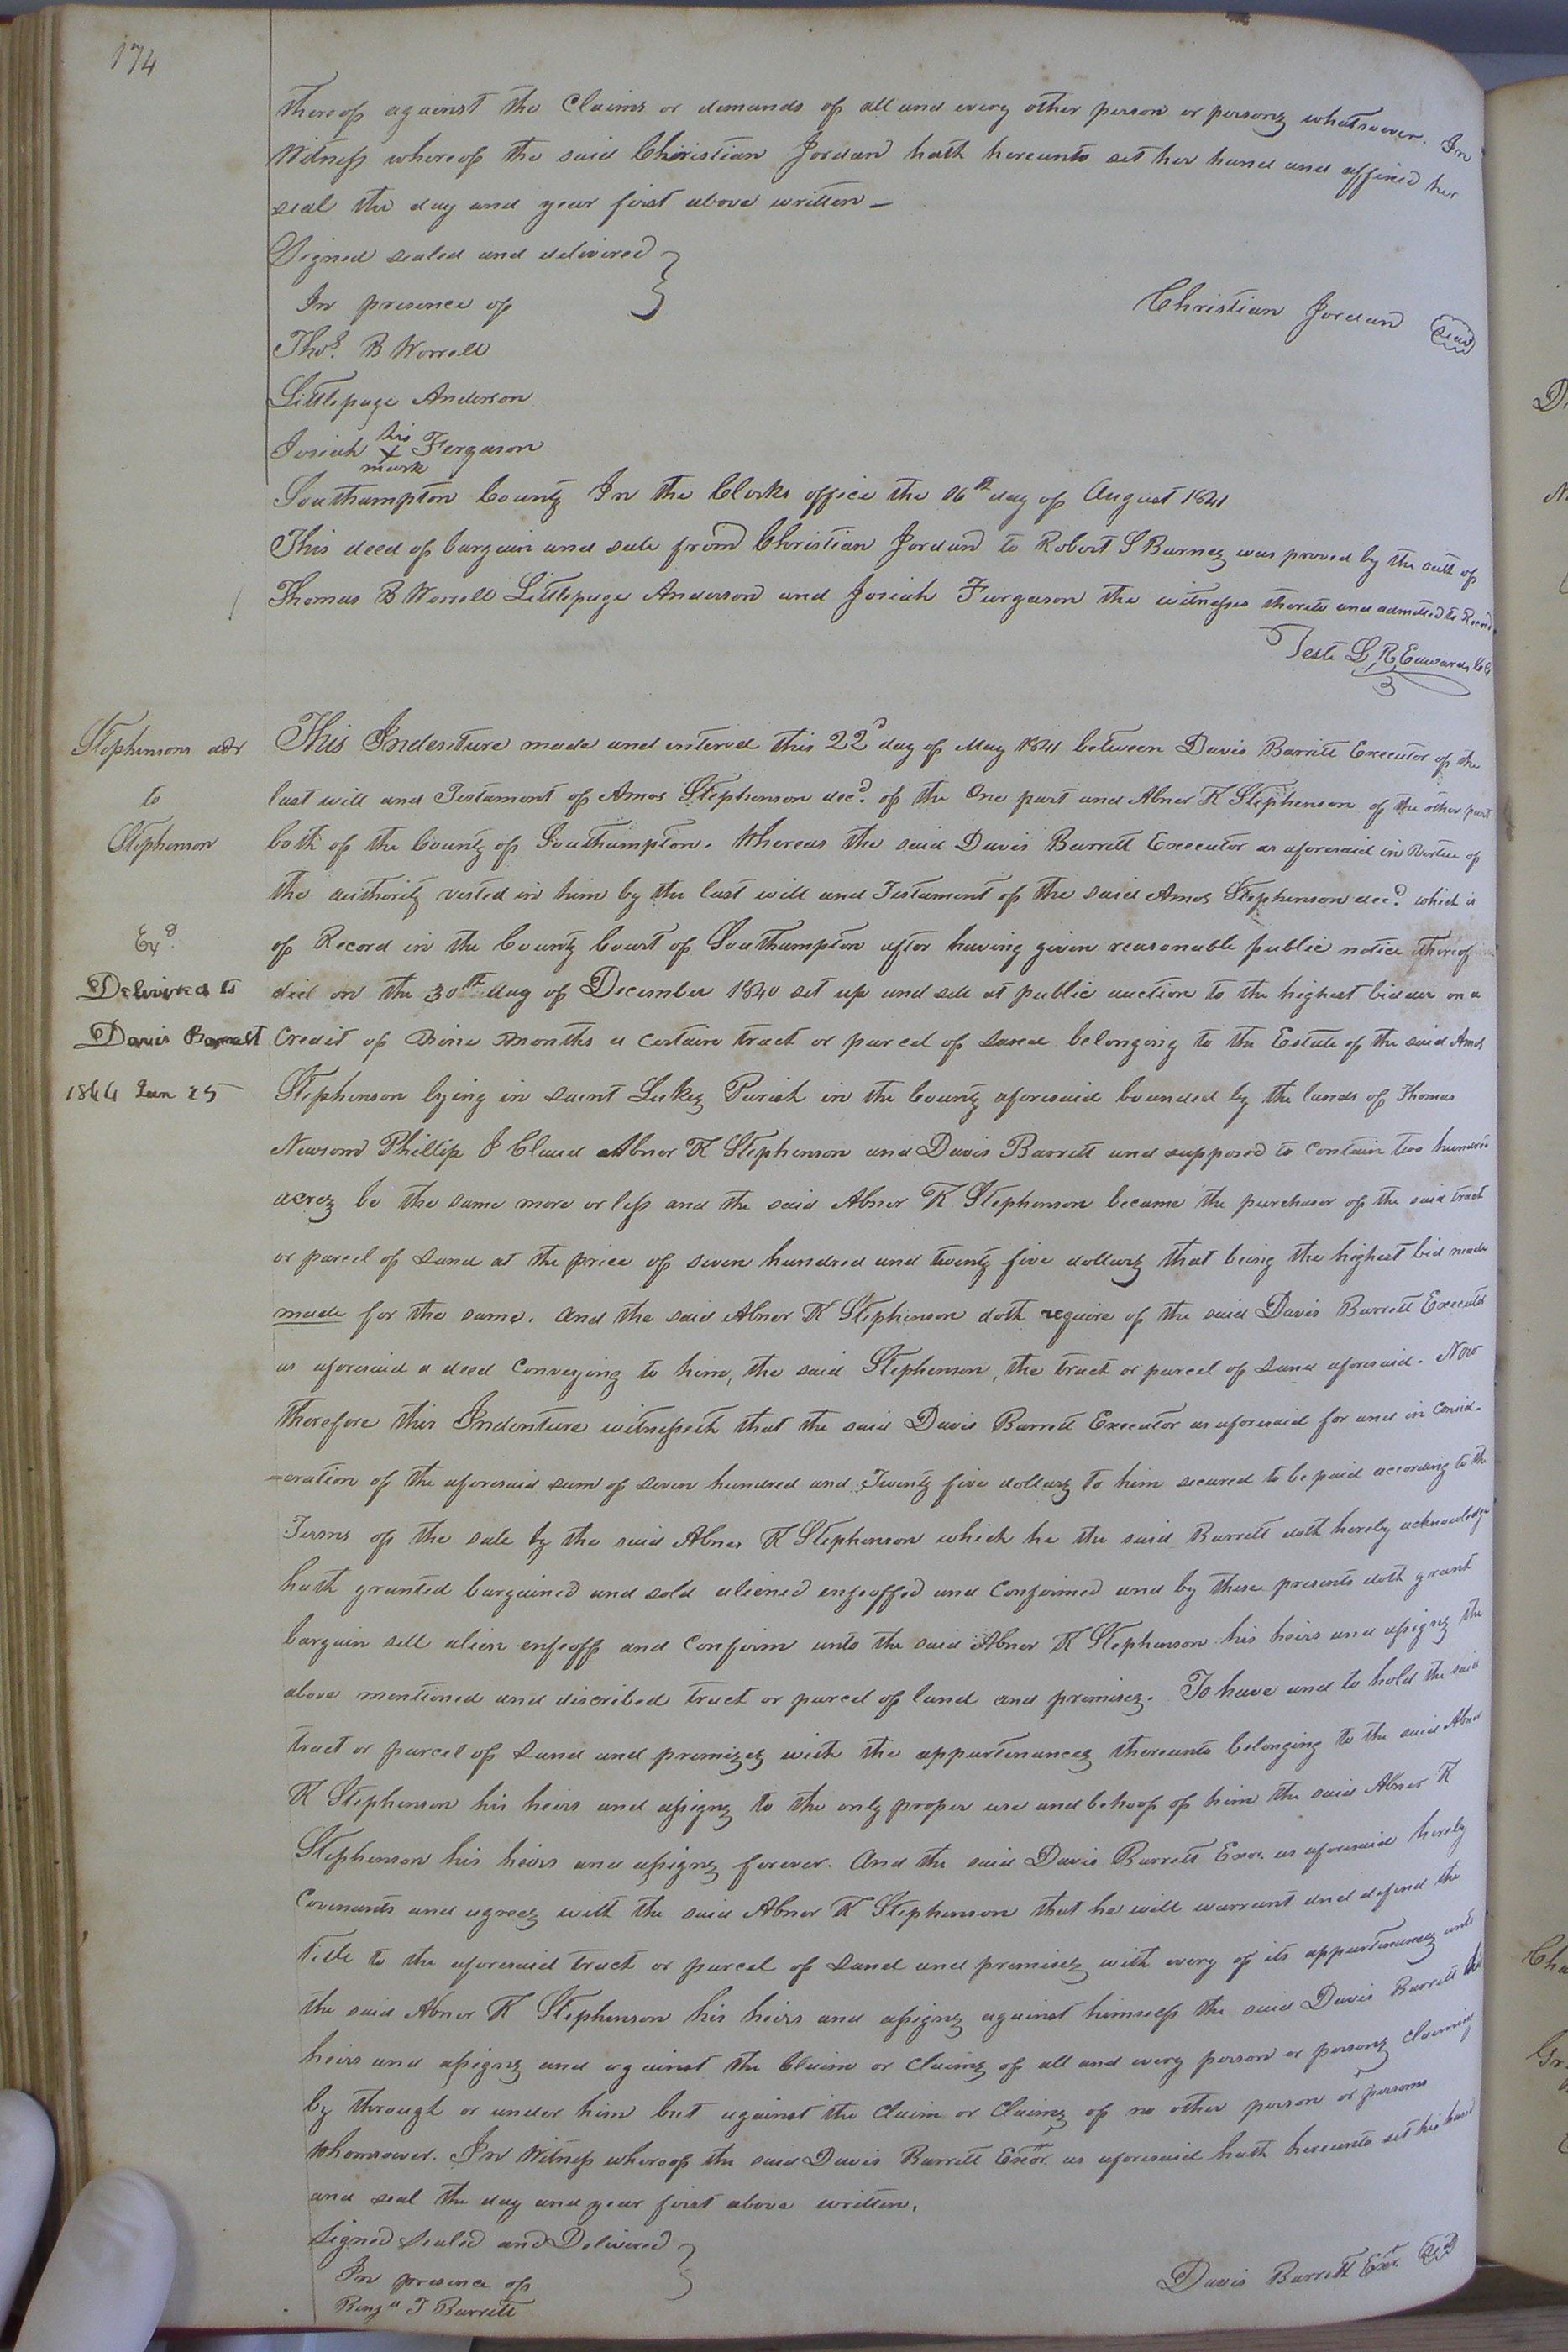 174
thereof against the Claims or demands of all and every other person or persons whatsoever. In
Witness whereof the said Christian Jordan hath hereunto set her hand and affixed her
seal the day and year first above written —
Signed sealed and delivered
In presence of
Christian Jordan seal
Thos. B Worrell
Littlepage Anderson
Josiah his X mark Fergason
Southampton County In the Clerks office the 16th day of August 1841
This deed of bargain and sale from Christian Jordan to Robert S Barnes was proved by the oath of
Thomas B Worrell Littlepage Anderson and Josiah Furgason the witnesses thereto and admitted to Record.
Teste L. R. Edwards CC
Stephensons exor
to
Stephenson
Exd.
Delivered to
Davis Barrett
1844 Jan 25
This Indenture made and entered this 22d day of May 1841 between Davis Barrett Executor of the
last will and Testament of Amos Stephenson decd. of the One part and Abner K Stephenson of the other part
both of the County of Southampton. Whereas the said Davis Barrett Executor as aforesaid in Vertue of
the authority vested in him by the last will and Testament of the said Amos Stephenson decd. which is
of Record in the County Court of Southampton after having given reasonable public notice thereof
did on the 30th day of December 1840 set up and sell at public auction to the highest bidder on a
Credit of Nine Months a certain tract or parcel of Land belonging to the Estate of the said Amos
Stephenson lying in Saint Lukes Parish in the County aforesaid bounded by the lands of Thomas
Newsom Phillip J Claud Abner K Stephenson and Davis Barrett and supposed to contain two hundred
acres be the same more or less and the said Abner K Stephenson became the purchaser of the said tract
or parcel of Land at the price of seven hundred and twenty five dollars that being the highest bid made
made for the same. And the said Abner K Stephenson doth require of the said Davis Barrett Executor
as aforesaid a deed Conveying to him, the said Stephenson, the tract or parcel of Land aforesaid. Now
therefore this Indenture witnesseth that the said Davis Barrett Executor as aforesaid for and in consid-
-eration of the aforesaid sum of seven hundred and Twenty five dollars to him secured to be paid according to the
Terms of the sale by the said Abner K Stephenson which he the said Barrett doth hereby acknowledge
hath granted bargained and sold aliened enfeoffed and Confirmed and by these presents doth grant
bargain sell alien enfeoff and Confirm unto the said Abner K Stephenson his heirs and assigns the
above mentioned and discribed tract or parcel of land and premises. To have and to hold the said
tract or parcel of Land and premises with the appurtenances thereunto belonging to the said Abner
K Stephenson his heirs and assigns to the only proper use and behoof of him the said Abner K
Stephenson his heirs and assigns forever. And the said Davis Barrett Exor. as aforesaid hereby
Covenants and agrees with the said Abner K Stephenson that he will warrant and defend the
Title to the aforesaid tract or parcel of Land and premises with every of its appurtenances unto
the said Abner K Stephenson his heirs and assigns against himself the said Davis Barrett his
heirs and assigns and against the Claim or Claims of all and every person or persons claiming
by through or under him but against the Claim or Claims of no other person or persons
whomsoever. In Witness whereof the said Davis Barrett Exor. as aforesaid hath hereunto set his hand
and seal the day and year first above written.
Signed Sealed and Delivered
In presence of
Davis Barrett Exor. seal
Benja J Barrett